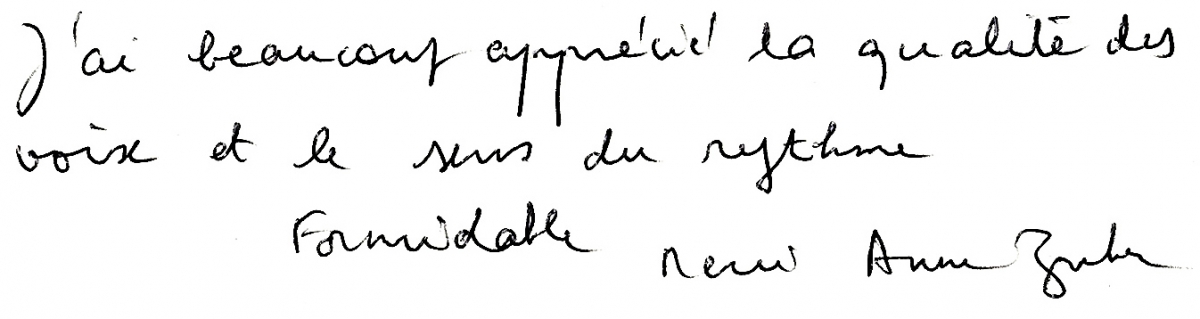 J'ai beaucoup apprécié la qualité des
voix et le sens du rythme
Formidable Merci Anne